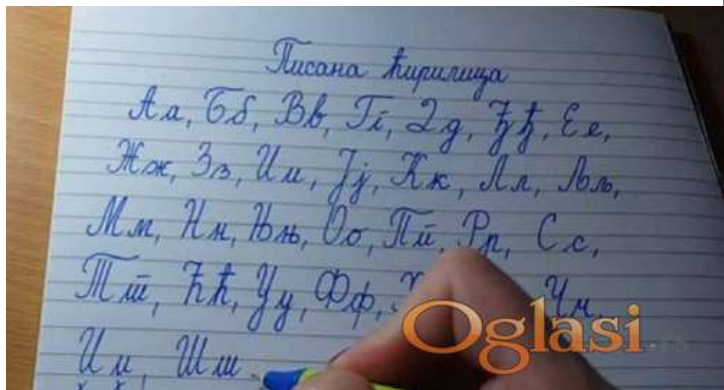 Писана ћирилица
Аа, Бб, Вв, Гг, Дд, Ђђ, Ее,
Жж, Зз, Ии, Јј, Кк, Лл, Љљ,
Мм, Нн, Њњ, Оо, Пп, Рр, Сс,
Тт, Ћћ, Уу, Фф, Чч,
Џџ, Шш.
Oglasi.rs